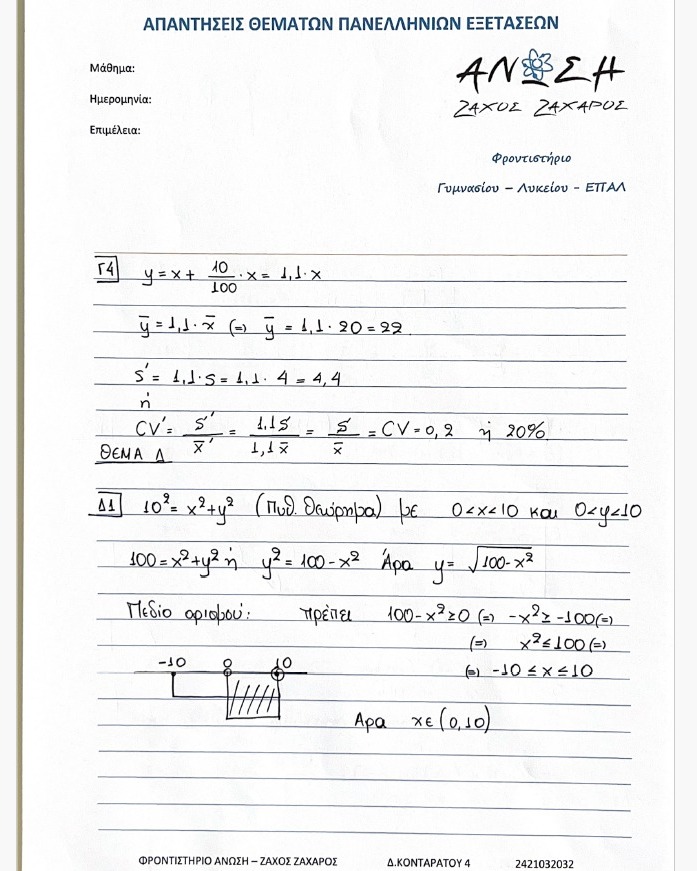 ΑΠΑΝΤΗΣΕΙΣ ΘΕΜΑΤΩΝ ΠΑΝΕΛΛΗΝΙΩΝ ΕΞΕΤΑΣΕΩΝ
Μάθημα:
Ημερομηνία:
Επιμέλεια:
ΑΝΩΣΗ
ΖΑΧΟΣ ΖΑΧΑΡΟΣ
Φροντιστήριο
Γυμνασίου – Λυκείου - ΕΠΑΛ
Γ4 y = x + 10/100 · x = 1,1 · x
ȳ = 1,1 · x̄ (=) ȳ = 1,1 · 20 = 22
s' = 1,1 · s = 1,1 · 4 = 4,4
ή
CV' = s'/x̄' = 1,1s/1,1x̄ = s/x̄ = CV = 0,2 ή 20%
ΘΕΜΑ Δ
Δ1 10² = x² + y² (Πυθ. Θεώρημα) με 0<x<10 και 0<y<10
100 = x² + y² ή y² = 100 - x² Άρα y = √100-x²
Πεδίο ορισμού: πρέπει 100-x² ≥ 0 (=) -x² ≥ -100 (=)
(=) x² ≤ 100 (=)
(=) -10 ≤ x ≤ 10
-10 0 10
Αρα x ∈ (0,10)
ΦΡΟΝΤΙΣΤΗΡΙΟ ΑΝΩΣΗ – ΖΑΧΟΣ ΖΑΧΑΡΟΣ Δ.ΚΟΝΤΑΡΑΤΟΥ 4 2421032032